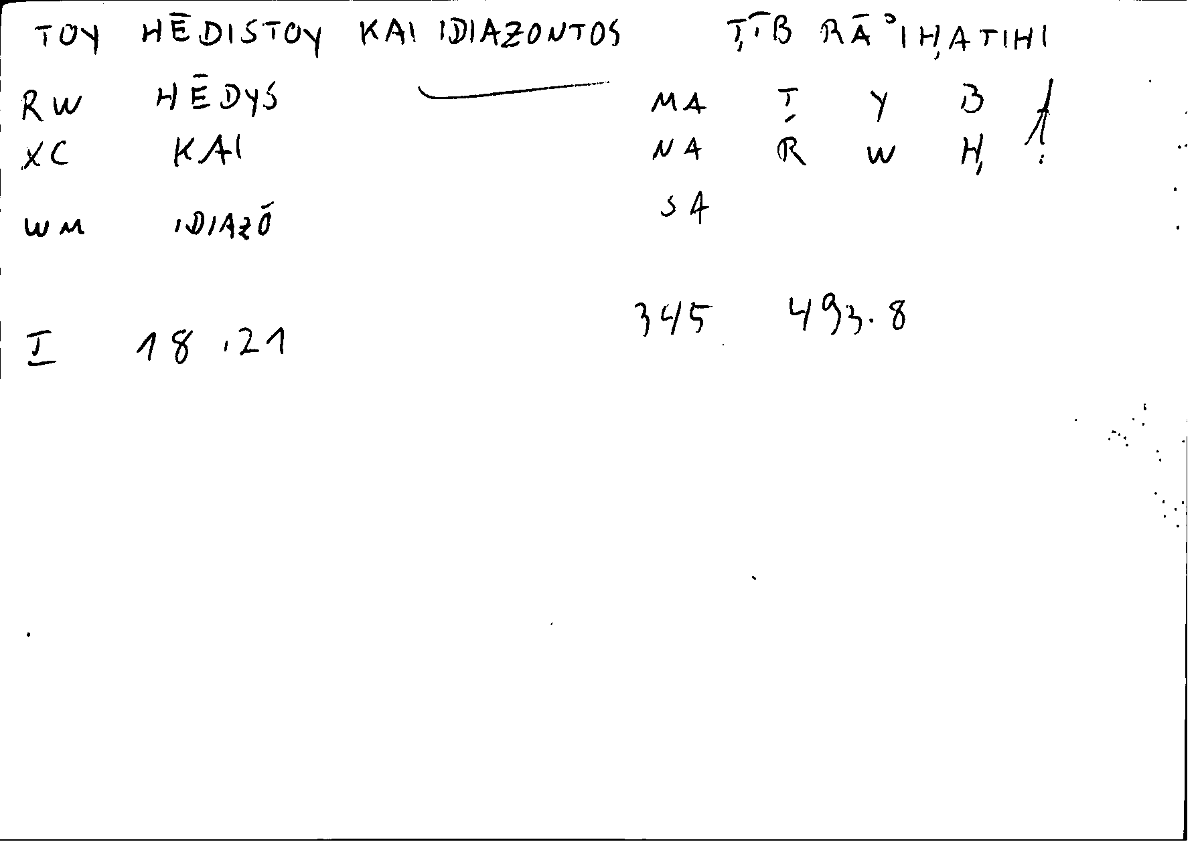 TOY HĒDISTOY KAI IDIAZONTOS ṬĪB RĀ°IḤATIHI
RW HĒDYS MA Ṭ Y B
XC KAI NA R W Ḥ
WM IDIAZŌ SA
I 18.21 345 493.8